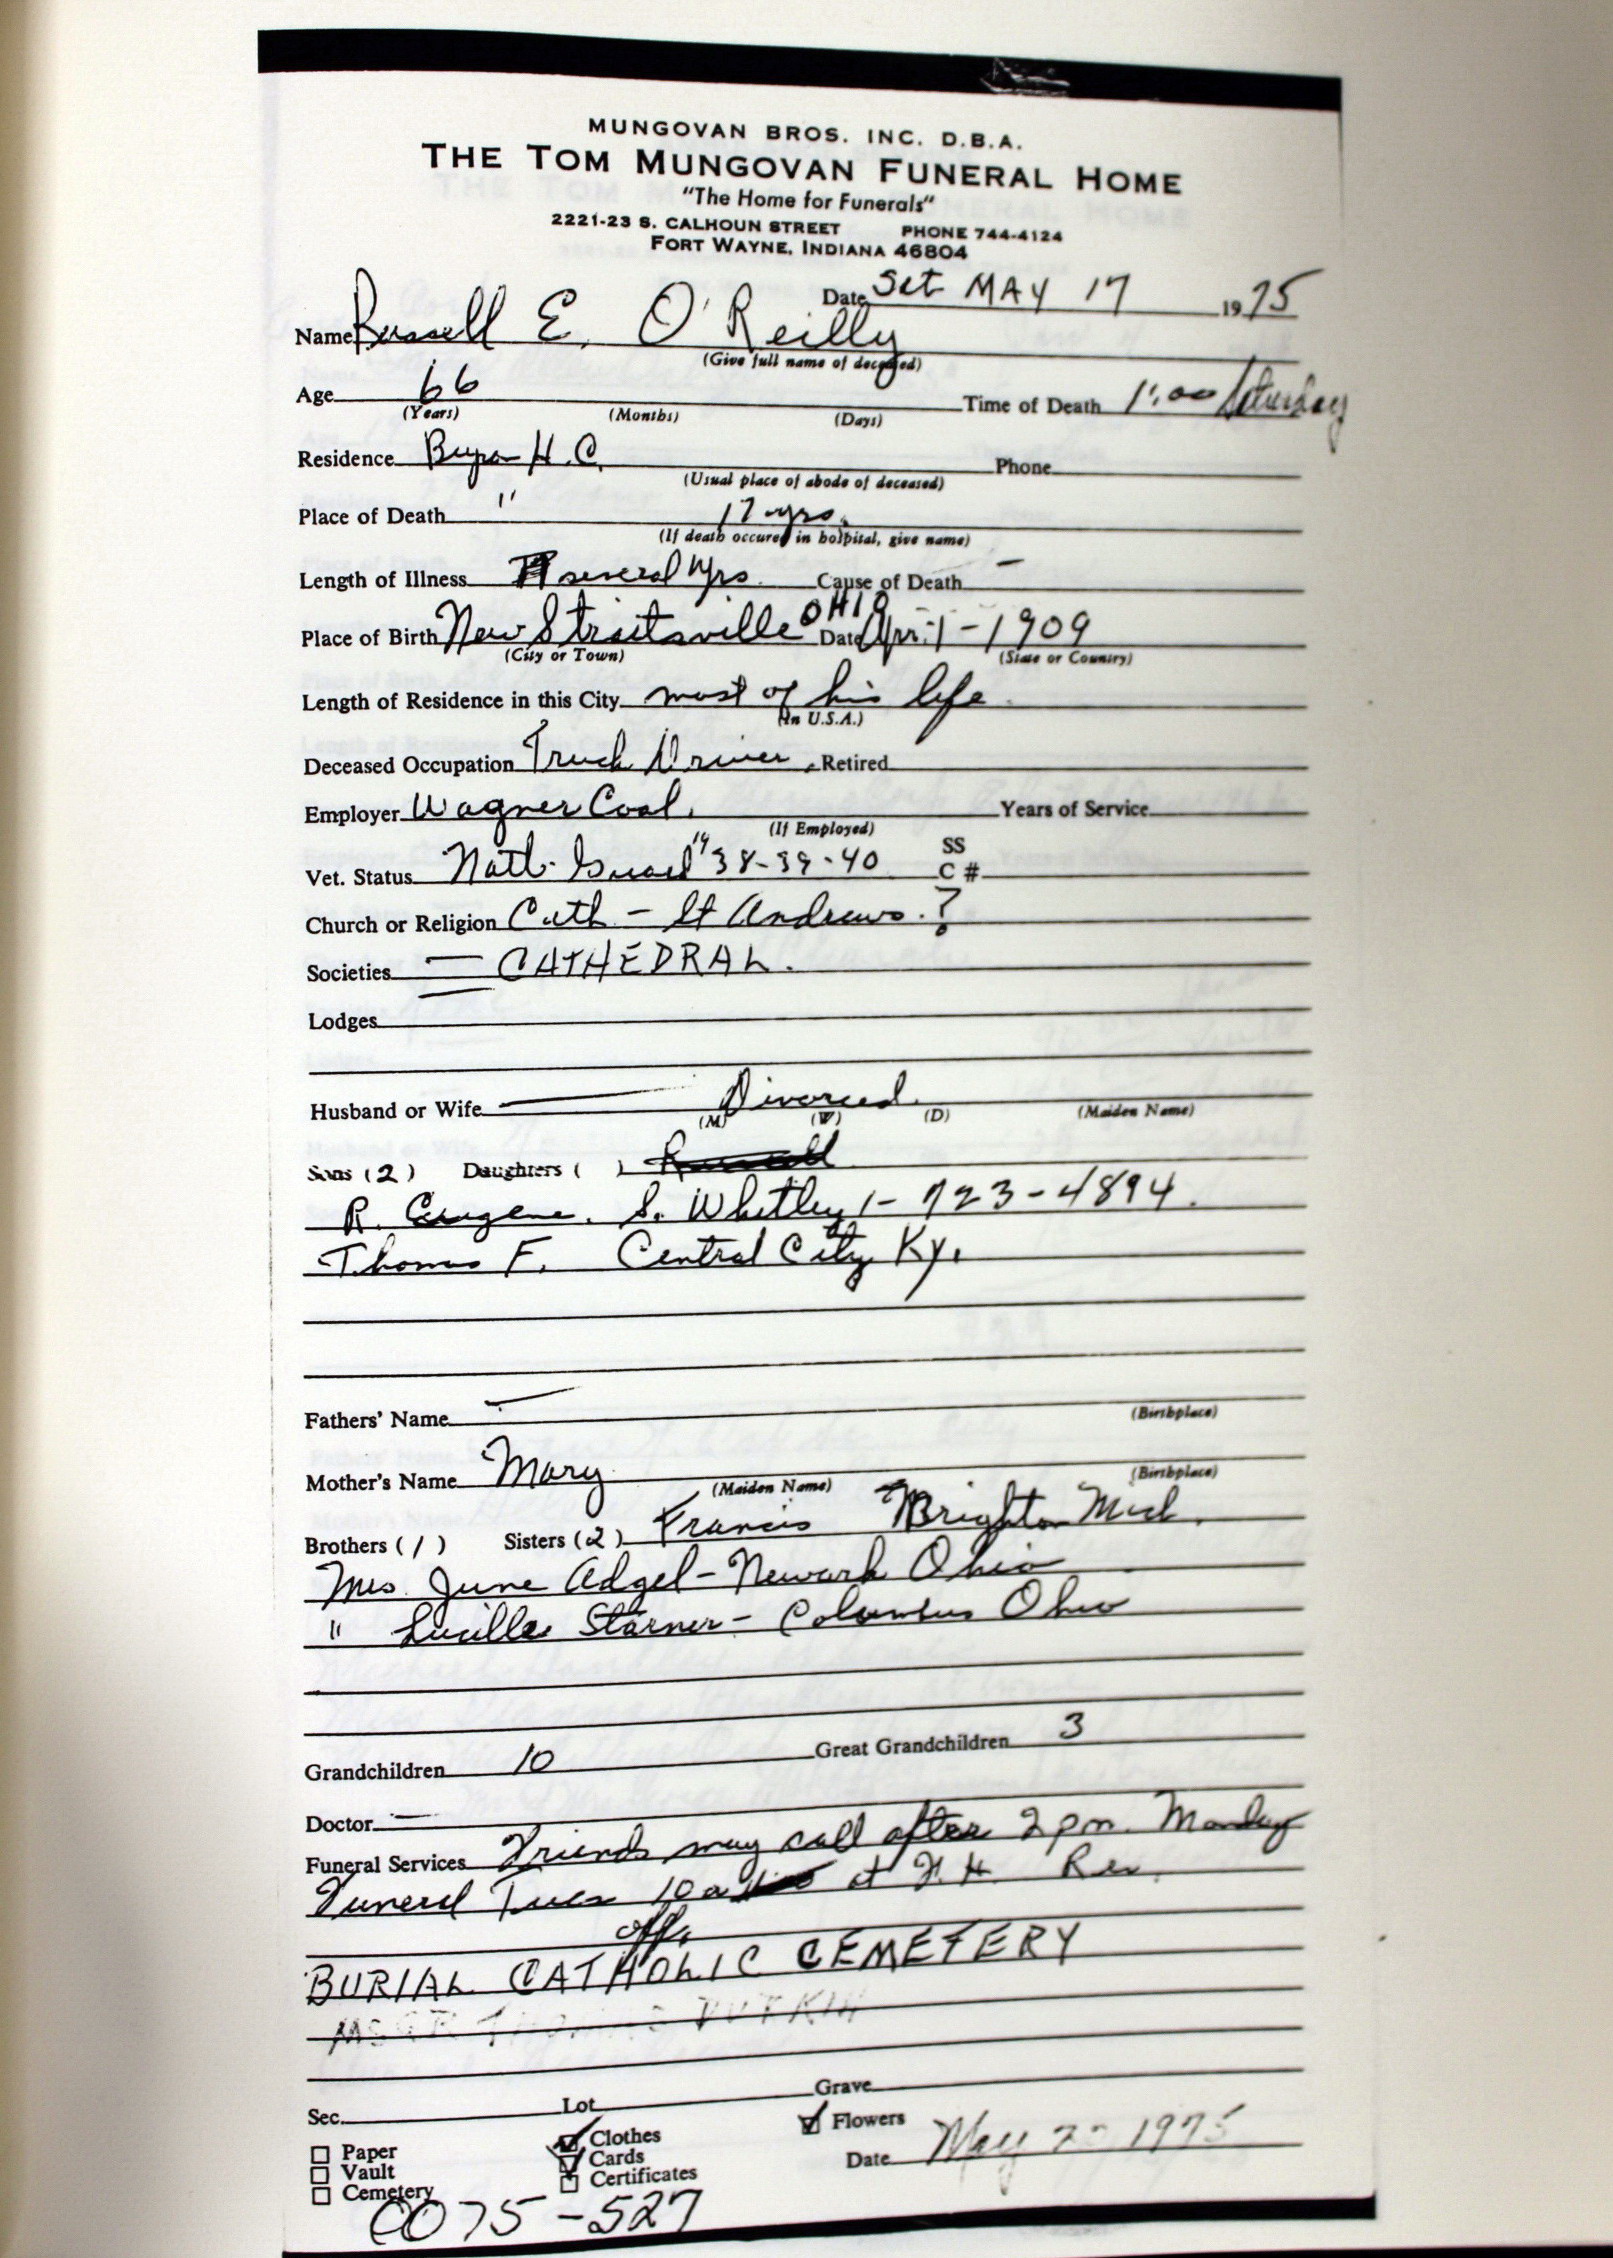 MUNGOVAN BROS. INC. D.B.A.
THE TOM MUNGOVAN FUNERAL HOME
"The Home for Funerals"
2221-23 S. CALHOUN STREET PHONE 744-4124
FORT WAYNE, INDIANA 46804
Date Sat MAY 17 1975
Name Russell E. O'Reilly
(Give full name of deceased)
Age 66 Time of Death 1:00 Saturday
(Years) (Months) (Days)
Residence Byron H.C. Phone
(Usual place of abode of deceased)
Place of Death " 17 yrs.
(If death occured in hospital, give name)
Length of Illness several yrs. Cause of Death —
Place of Birth New Straitsville OHIO Date Apr. 1-1909
(City or Town) (State or Country)
Length of Residence in this City most of his life
(In U.S.A.)
Deceased Occupation Truck Driver, Retired
Employer Wagner Coal. Years of Service
(If Employed)
Vet. Status Natl. Guard "38-39-40 SS
C #
Church or Religion Cath - St Andrews. ?
Societies — CATHEDRAL.
Lodges
Husband or Wife — Divorced.
(M) (W) (D) (Maiden Name)
Sons (2) Daughters ( )
R. Eugene. S. Whitley 1-723-4894.
Thomas F. Central City Ky.
Fathers' Name — (Birthplace)
Mother's Name Mary
(Maiden Name) (Birthplace)
Brothers (1) Sisters (2) Francis Brighton Mich.
Mrs. June Adgel - Newark Ohio
" Lucille Starner - Columbus Ohio
Grandchildren 10 Great Grandchildren 3
Doctor —
Funeral Services Friends may call after 2 pm. Monday
Funeral Tues 10 a at F.H. Rev.
off.
BURIAL CATHOLIC CEMETERY
MSGR THOMAS DURKIN
Sec. Lot Grave
Paper Clothes Flowers
Vault Cards Date May 1975
Cemetery Certificates
0075-527